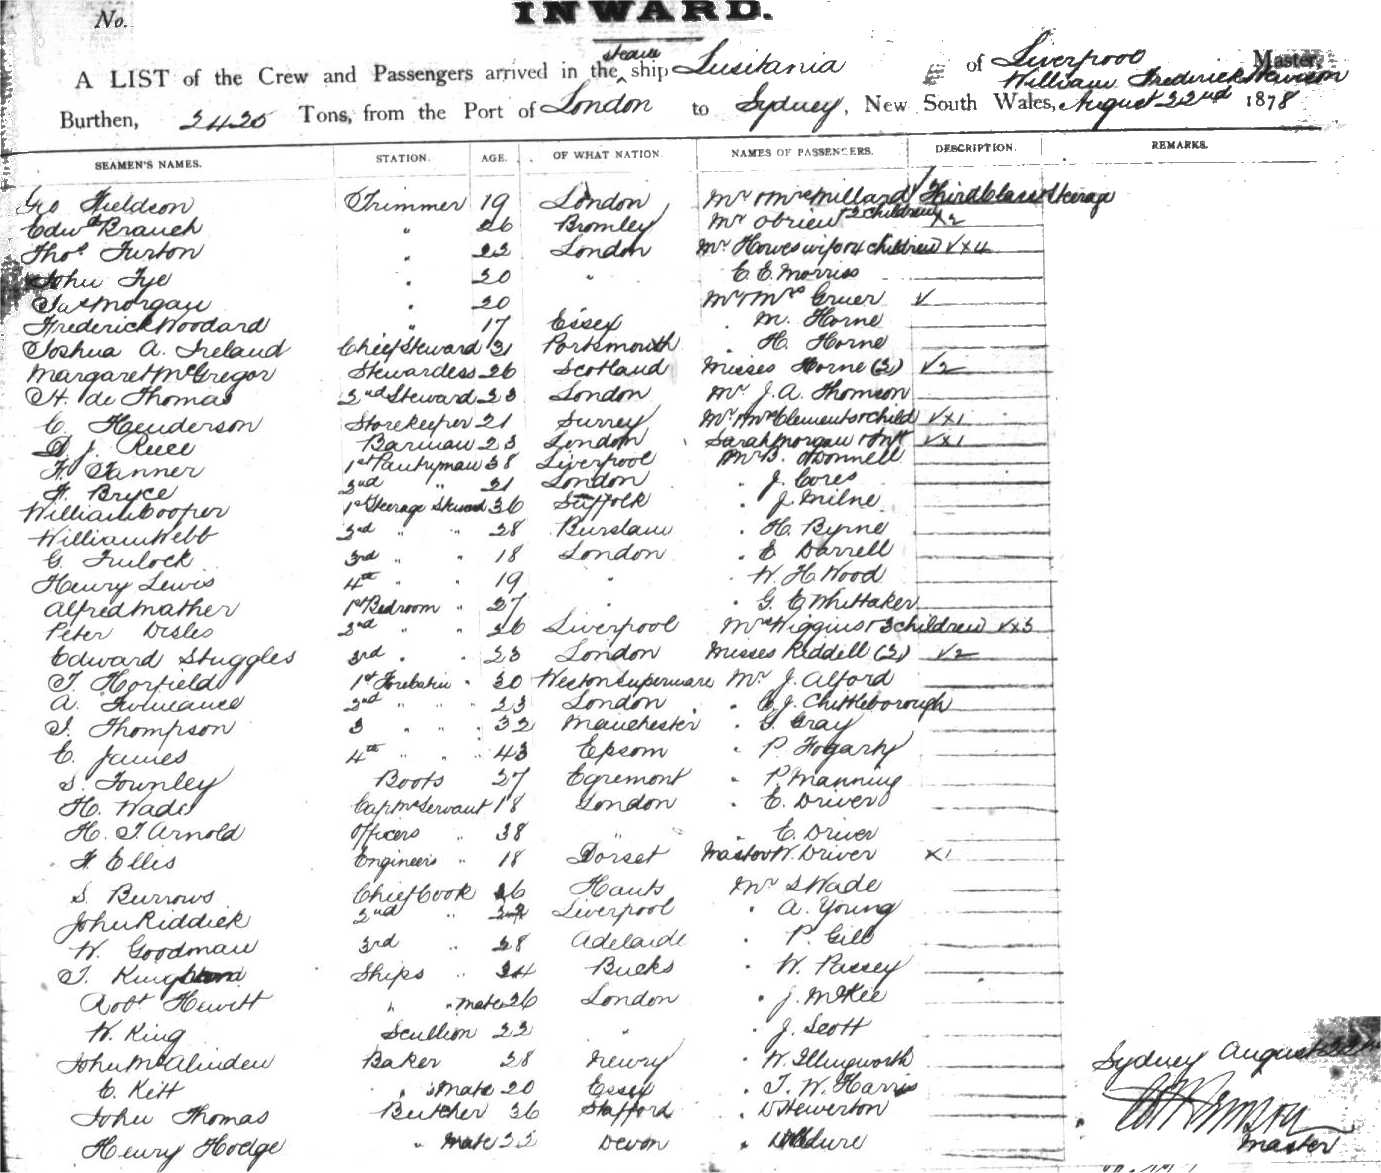 No.
INWARD.
A LIST of the Crew and Passengers arrived in the steam ship Lusitania of Liverpool Master,
William Frederick
Burthen, 2425 Tons, from the Port of London to Sydney, New South Wales, August 22nd 1878
SEAMEN'S NAMES. STATION. AGE. OF WHAT NATION. NAMES OF PASSENGERS. DESCRIPTION. REMARKS.
Geo Fieldson Trimmer 19 London Mr & Mrs Millard Third Class & Steerage
Edwd Branch " 26 Bromley Mr OBrien 2 children x2
Thos Furton " 22 London Mr Howes wife & 4 children √x4
John Tye " 20 " C. E. Morriss
Jas Morgan " 20 Mr & Mrs Gruer √
Frederick Woodard " 17 Essex " M. Horne
Joshua A. Ireland Chief Steward 31 Portsmouth " H. Horne
Margaret McGregor Stewardess 26 Scotland Misses Horne (2) √2
H. de Thomas 2nd Steward 23 London Mr J. A. Thomson
C. Henderson Storekeeper 21 Surrey Mr & Mrs Clements & child √x1
J. Reee Barman 23 London Sarah Morgan & Inft √x1
F. Tanner 1st Pantryman 38 Liverpool Mr B. O'Donnell
F. Bryce 2nd " 21 London " J. Cores
William Cooper 1st Steerage Steward 36 Suffolk " J. Milne
William Webb 2nd " " 28 Burslam " H. Byrne
G. Trulock 3rd " " 18 London " E Darrell
Henry Lewis 4th " " 19 " " W. H. Wood
Alfred Mather 1st Bedroom " 27 " " G. E. Whittaker
Peter Disles 2nd " " 26 Liverpool Mrs Wiggins & 3 children √x3
Edward Stuggles 3rd " " 23 London Misses Riddell (2) √2
T. Horfield 1st Forecabin " 30 Weston Superware Mr J. Alford
A. 2nd " " 23 London " C. J. Chittleborough
T. Thompson 3 " " " 32 Manchester " G. Gray
C. James 4th " " " 43 Epsom " P. Fogarty
S. Townley Boots 27 Egremont " P. Manning
H. Wade Captns Servant 18 London " E. Driver
H. T Arnold Officers " 38 " " E. Driver
F. Ellis Engineers " 18 Dorset Master W. Driver x1
S. Burrows Chief Cook 26 Hants Mr S Wade
John Riddick 2nd " Liverpool " A. Young
W. Goodman 3rd " 28 Adelaide " P. Gill
T. King Ships " 24 Bucks " W. Passey
Robt Hewitt " " mate 26 London " J. McKee
W. King Scullion 22 " " J. Scott
John McAlinden Baker 28 Newry " W. Illingworth
C. Kitt " mate 20 Essex " T. W. Harris
John Thomas Butcher 36 Stafford " D Hewerton
Henry Hodge " mate 22 Devon "
Sydney August 22nd
Master